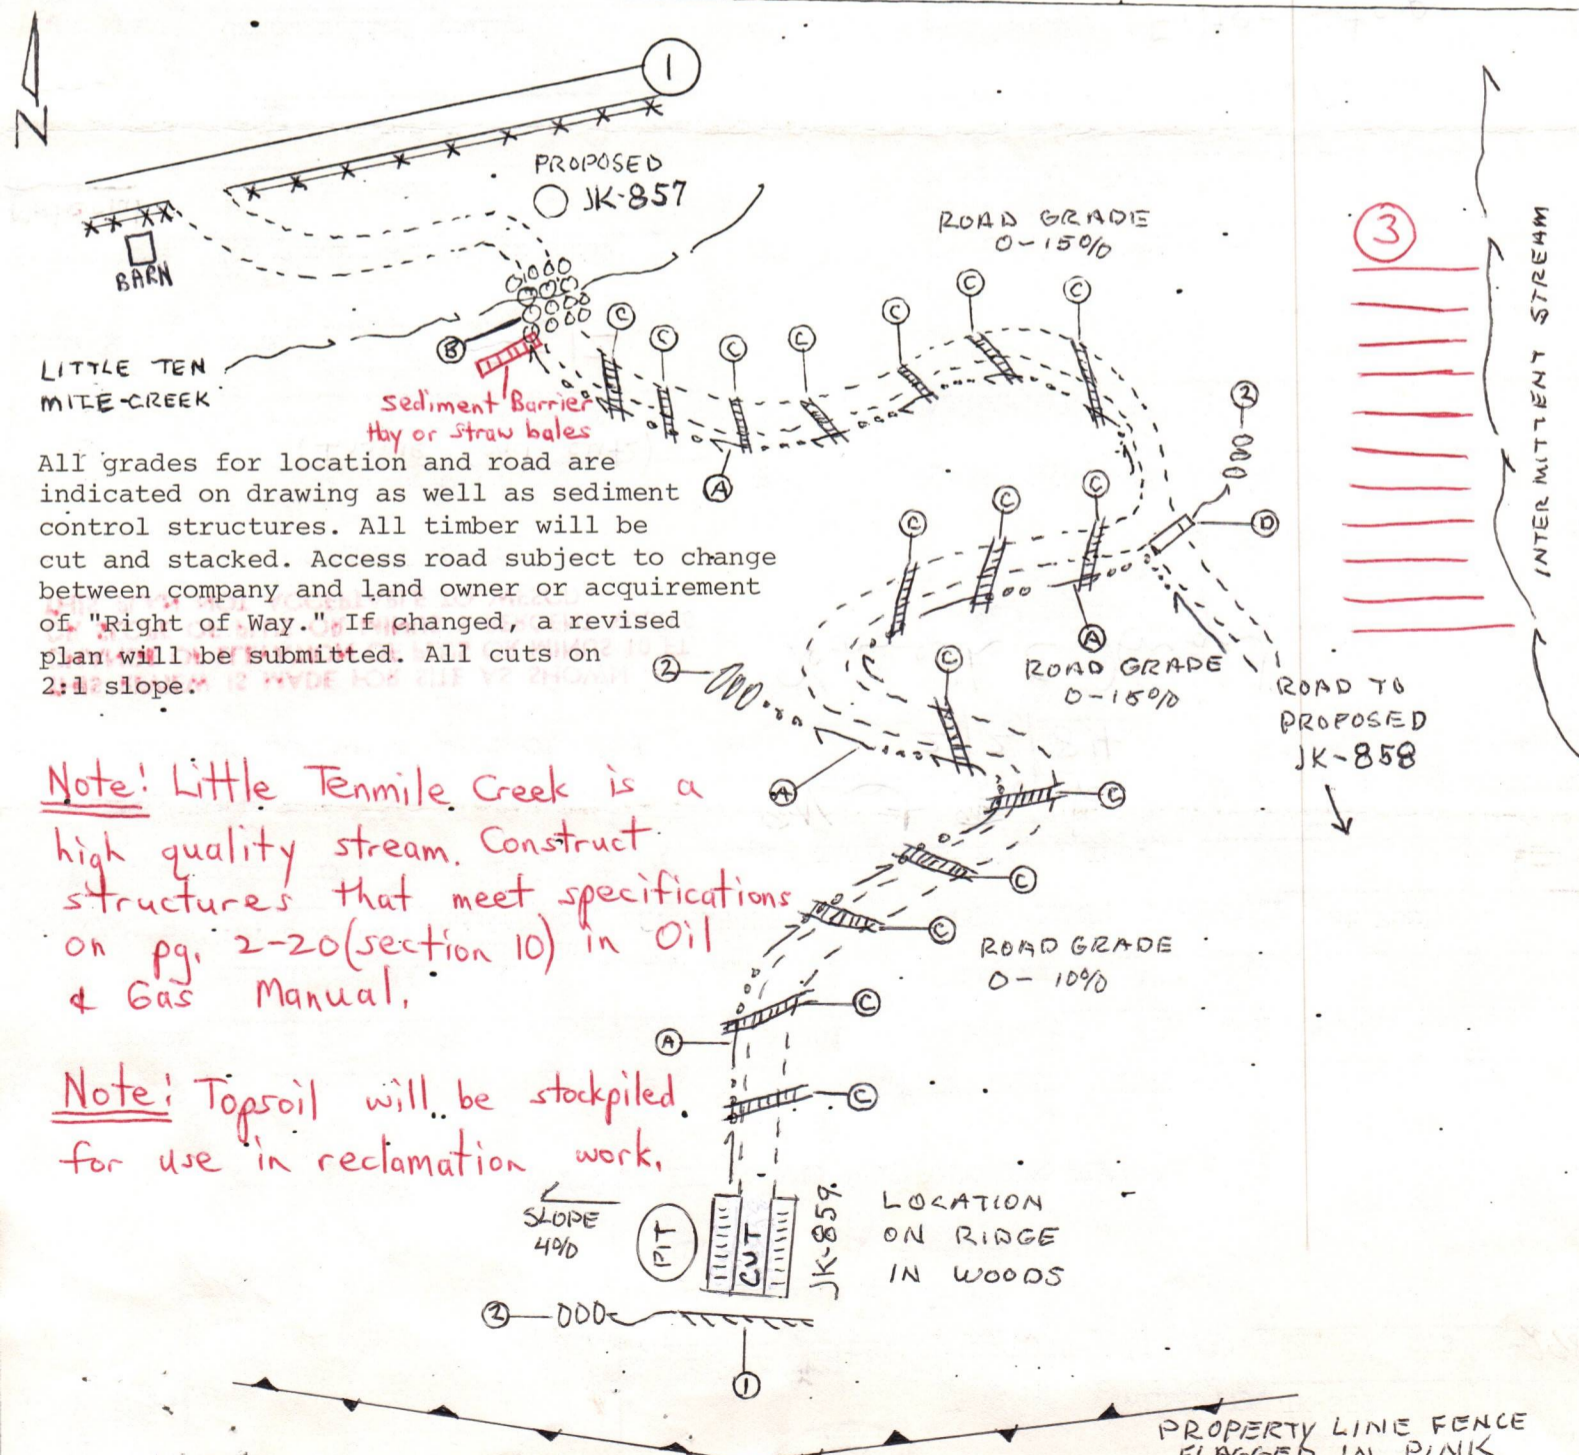 N
1
PROPOSED
JK-857
BARN
ROAD GRADE
0-15%
3
INTERMITTENT STREAM
C
C
C
C
C
C
C
B
LITTLE TEN
MILE-CREEK
Sediment Barrier
Hay or Straw bales
2
A
All grades for location and road are
indicated on drawing as well as sediment
control structures. All timber will be
cut and stacked. Access road subject to change
between company and land owner or acquirement
of "Right of Way." If changed, a revised
plan will be submitted. All cuts on
2:1 slope.
C
C
C
D
A
ROAD GRADE
0-15%
2
C
ROAD TO
PROPOSED
JK-858
A
C
Note! Little Tenmile Creek is a
high quality stream. Construct
structures that meet specifications
on pg. 2-20 (section 10) in Oil
& Gas Manual.
C
C
ROAD GRADE
0-10%
C
A
C
Note! Topsoil will be stockpiled
for use in reclamation work.
SLOPE
4%
PIT
CUT
JK-859
LOCATION
ON RIDGE
IN WOODS
2
1
PROPERTY LINE FENCE
FLAGGED IN PINK